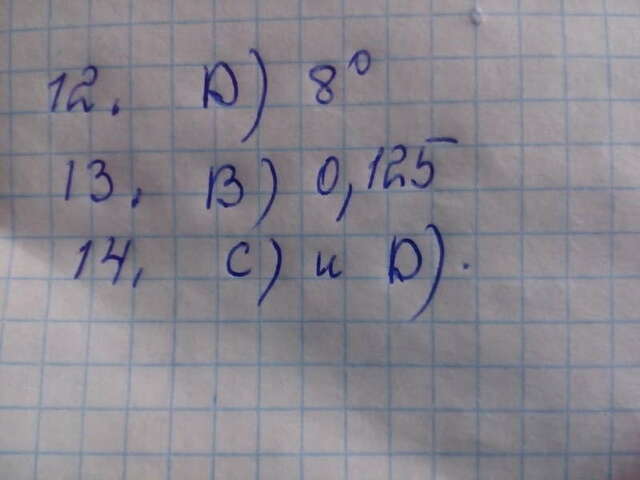 12. D) 8°
13. B) 0,125
14. C) и D).